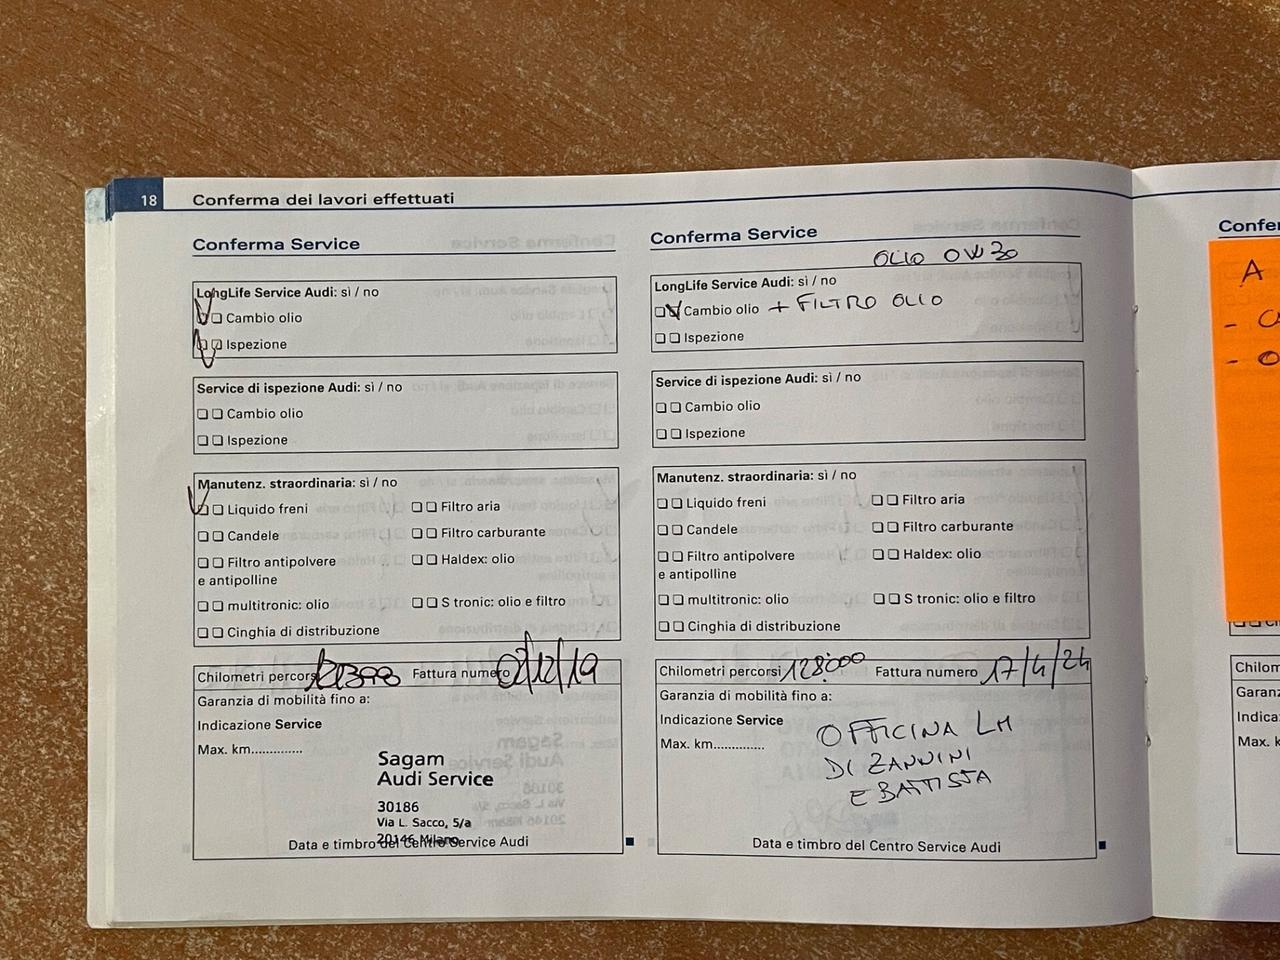 18 Conferma dei lavori effettuati
Conferma Service
LongLife Service Audi: sì / no
Cambio olio
Ispezione
Service di ispezione Audi: sì / no
Cambio olio
Ispezione
Manutenz. straordinaria: sì / no
Liquido freni
Filtro aria
Candele
Filtro carburante
Filtro antipolvere
e antipolline
Haldex: olio
multitronic: olio
S tronic: olio e filtro
Cinghia di distribuzione
Chilometri percorsi Fattura numero 02/12/19
Garanzia di mobilità fino a:
Indicazione Service
Max. km..............
Sagam
Audi Service
30186
Via L. Sacco, 5/a
20146 Milano
Data e timbro del Centro Service Audi
Conferma Service
OLIO 0W30
LongLife Service Audi: sì / no
Cambio olio + FILTRO OLIO
Ispezione
Service di ispezione Audi: sì / no
Cambio olio
Ispezione
Manutenz. straordinaria: sì / no
Liquido freni
Filtro aria
Candele
Filtro carburante
Filtro antipolvere
e antipolline
Haldex: olio
multitronic: olio
S tronic: olio e filtro
Cinghia di distribuzione
Chilometri percorsi 128.000 Fattura numero 17/4/24
Garanzia di mobilità fino a:
Indicazione Service
Max. km..............
OFFICINA LM
DI ZANNINI
E BATTISTA
Data e timbro del Centro Service Audi
A
Max. k